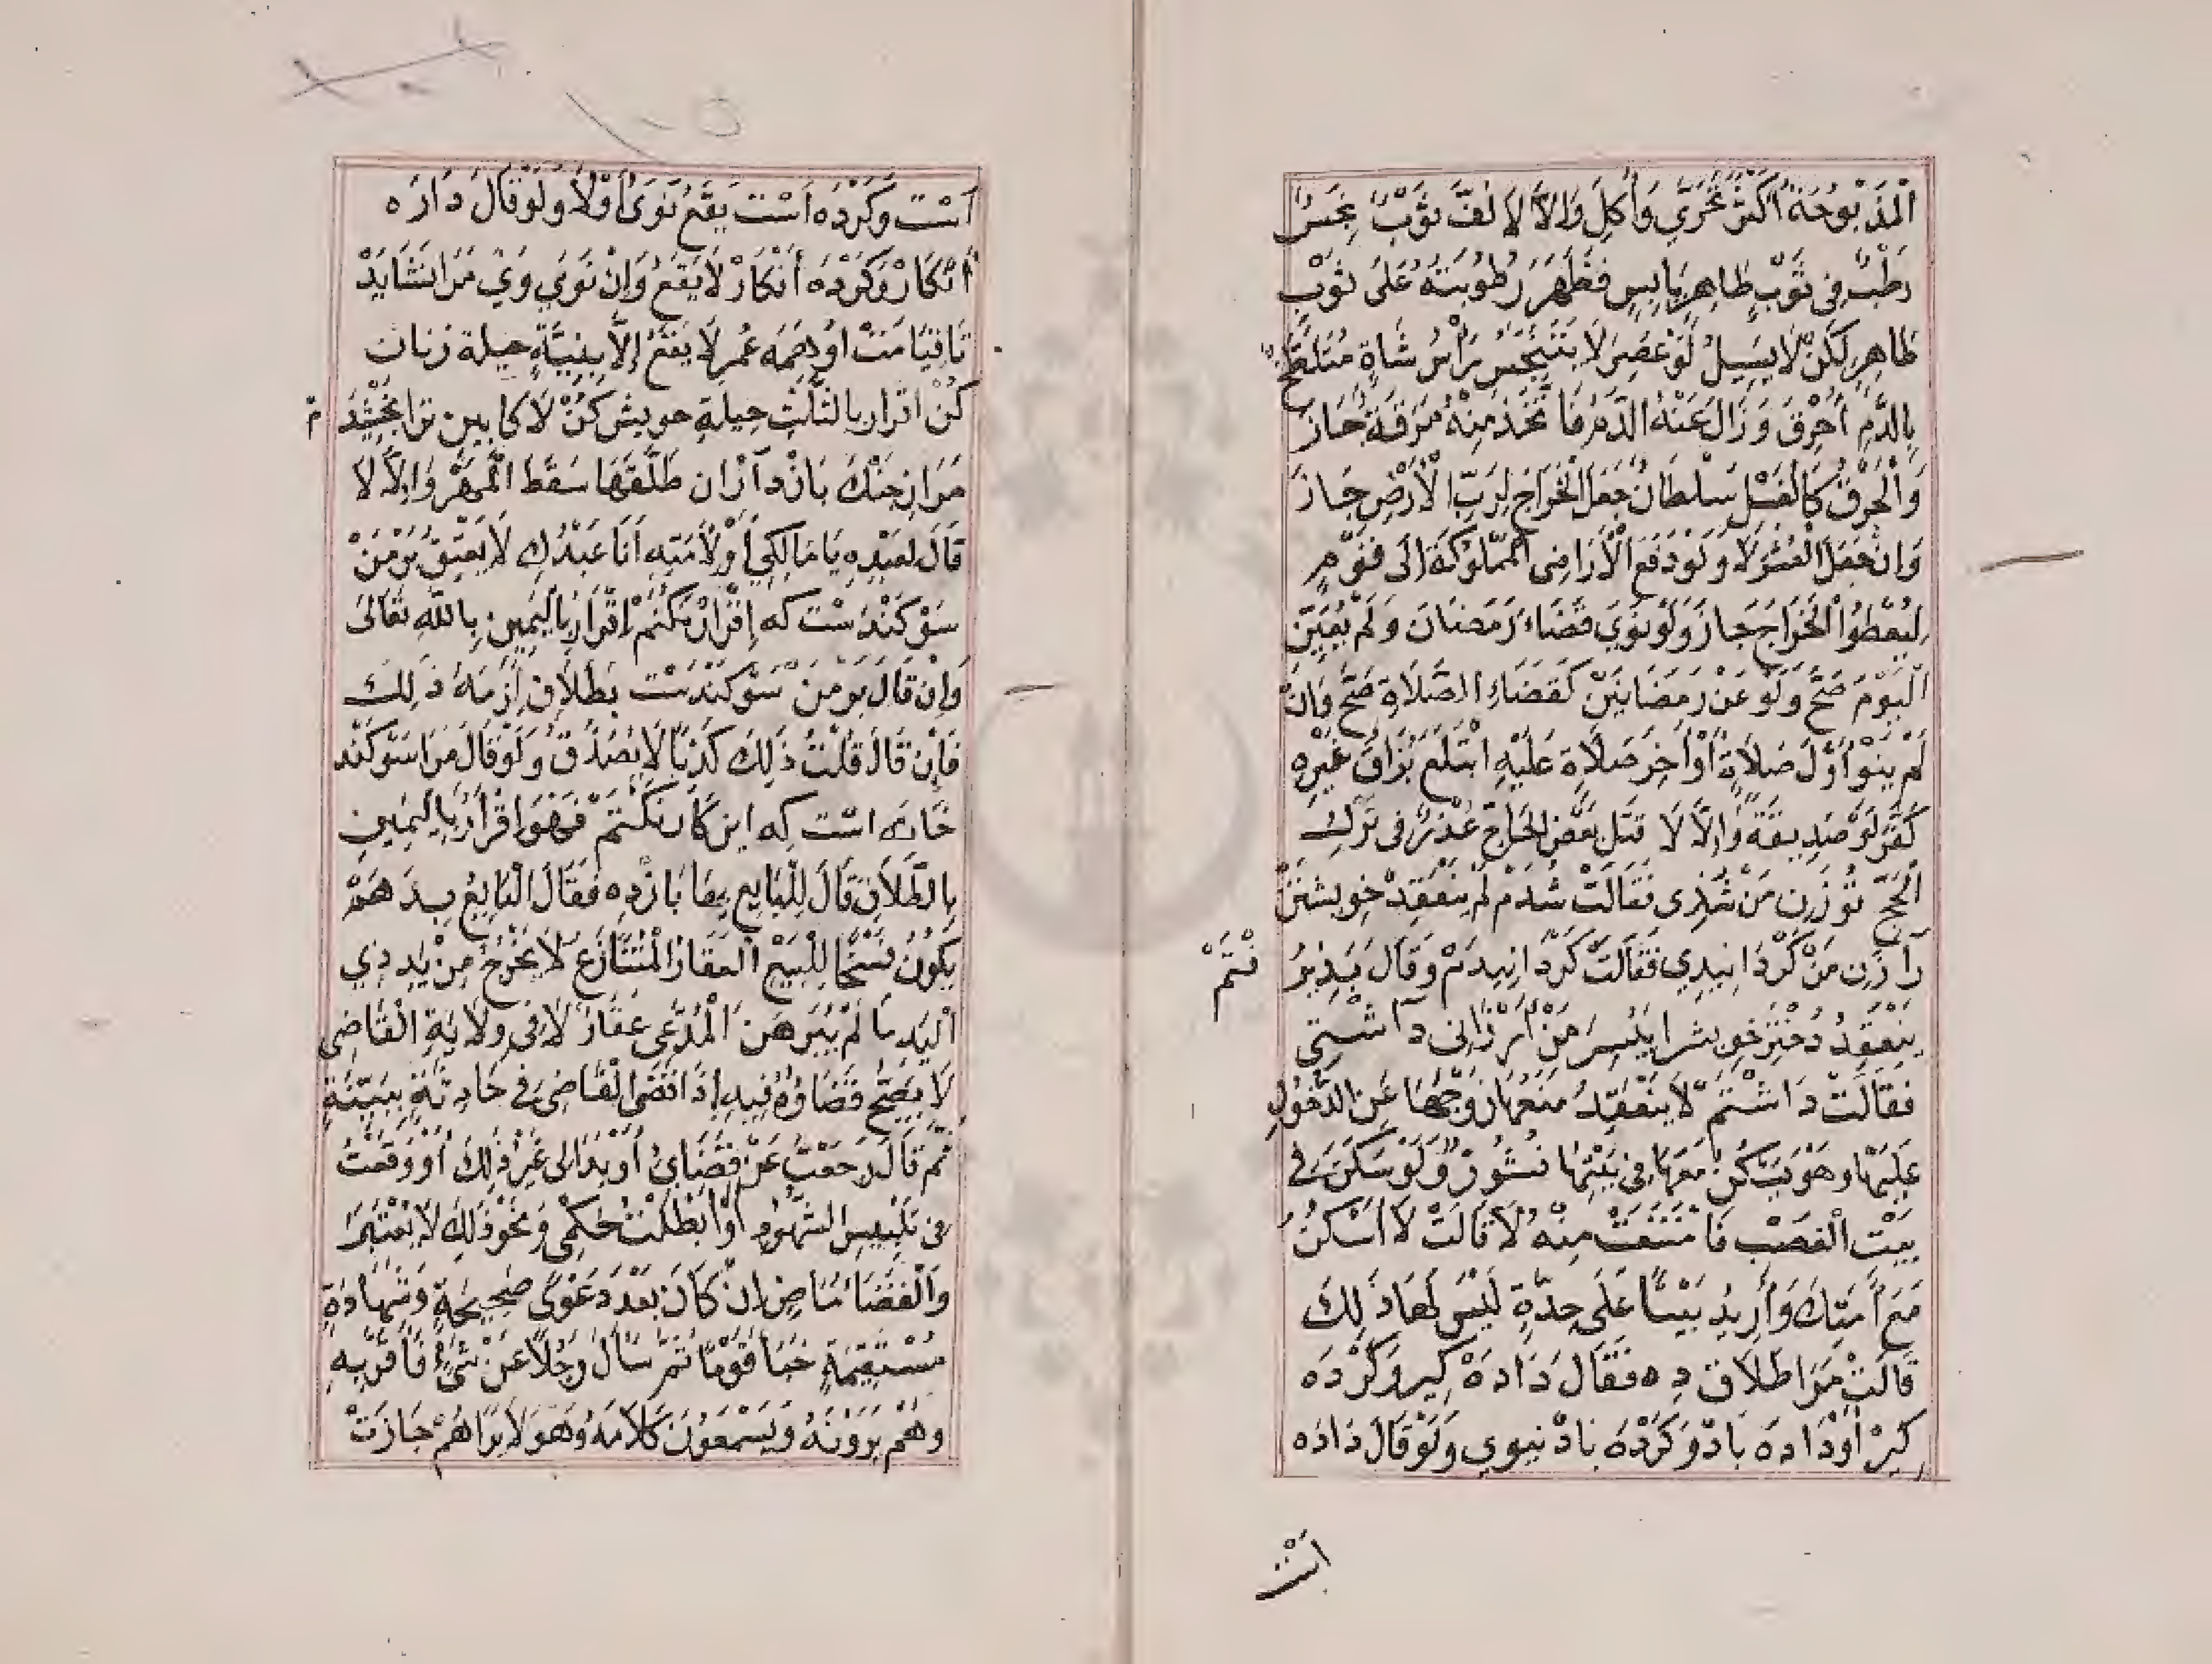 الْمَذْبُوحَةُ أَكْثَرَ تَحَرَّي وَأَكَلَ وَإِلَّا لَا لُفَّ ثَوْبٌ نَجِسٌ
رَطْبٌ فِي ثَوْبٍ طَاهِرٍ يَابِسٍ فَظَهَرَ رُطُوبَتُهُ عَلَى ثَوْبٍ
طَاهِرٍ لَكِنْ لَا يَسِيلُ لَوْ عُصِرَ لَا يَتَنَجَّسُ رَأْسُ شَاةٍ مُتَلَطِّخٌ
بِالدَّمِ أُحْرِقَ وَزَالَ عَنْهُ الدَّمُ فَاتُّخِذَ مِنْهُ مَرَقَةٌ جَازَ
وَالْحَرْقُ كَالْغَسْلِ سُلْطَانٌ جَعَلَ الْخَرَاجَ لِرَبِّ الْأَرْضِ جَازَ
وَإِنْ جَعَلَ الْعُشْرَ لَا وَلَوْ دَفَعَ الْأَرَاضِي الْمَمْلُوكَةَ إِلَى قَوْمٍ
لِيُعْطُوا الْخَرَاجَ جَازَ وَلَوْ نَوَي قَضَاءَ رَمَضَانَ وَلَمْ يُعَيِّنْ
الْيَوْمَ صَحَّ وَلَوْ عَنْ رَمَضَانَيْنِ كَقَضَاءِ الصَّلَاةِ صَحَّ وَإِنْ
لَمْ يَنْوِ أَوَّلَ صَلَاةٍ أَوْ آخِرَ صَلَاةٍ عَلَيْهِ ابْتَلَعَ بُزَاقَ غَيْرِهِ
كَفَّرَ لَوْ صَدِيقَهُ وَإِلَّا لَا قَتْلُ بَعْضِ الْحَاجِّ عُذْرٌ فِي تَرْكِ
الْحَجِّ تُو زَنِ مَنْ شُدِي فَقَالَتْ شُدَمْ لَمْ يَنْعَقِدْ خويشتن
رَا زَنِ مَنْ كَرْدَانِيدِي فَقَالَتْ كَرْدَانِيدَمْ وَقَالَ بَذِيرُ فْتَمْ
يَنْعَقِدُ دُخْتَرِ خويش را بِپِسَرِ مَنْ أَرْزَانِي دَاشْتِي
فَقَالَتْ دَاشْتَمْ لَا يَنْعَقِدُ مَنْعُهَا زَوْجَهَا عَنِ الدُّخُولِ
عَلَيْهَا وَهُوَ يَسْكُنُ مَعَهَا فِي بَيْتِهَا نُشُوزٌ وَلَوْ سَكَنَ فِي
بَيْتِ الْغَصْبِ فَامْتَنَعَتْ مِنْهُ لَا قَالَتْ لَا أَسْكُنُ
مَعَ أَمَتِكَ وَأُرِيدُ بَيْتًا عَلَى حِدَةٍ لَيْسَ لَهَا ذَلِكَ
قَالَتْ مَرَا طَلَاق دِه فَقَالَ دَادَهْ كِير وَكَرْدَه
كِيرْ أَوْ دَادَه بَادْ وَكَرْدَه بَادْ يَنْوِي وَلَوْ قَالَ دَادَه
اَسْت
اَسْت وَكَرْدَه اَسْت يَقَعُ نَوَى أَوْ لَا وَلَوْ قَالَ دَادَه
أَنْكَارْ وَكَرْدَه أَنْكَارْ لَا يَقَعُ وَإِنْ نَوَي وَيْ مَرَا نَشَايَدْ
تَا قِيَامَتْ اَوْ هَمَه عُمر لَا يَقَعُ إِلَّا بِنِيَّةٍ حيلة زنان
كُنْ اقرار بِالثَّلَثِ حِيلَةِ خويش كُنْ لَا كابين ترا بَخْشِيدَ م
مَرَا از جَنْكَ بَازْ دَار اِن طَلَّقَهَا سَقَطَ الْمَهْرُ وَإِلَّا لَا
قَالَ لِعَبْدِهِ يَا مَالِكِي أَوْ لِأَمَتِهِ أَنَا عَبْدُكِ لَا يَعْتِقُ بَرْ مَنْ
سَوْكَنْدَسْت كه إِقْرَارٌ بِالْيَمِينِ بِاللَّهِ تَعَالَى
وَإِنْ قَالَ بَرْ مَنْ سَوْكَنْدَسْت بِطَلَاقٍ لَزِمَهُ ذَلِكَ
فَإِنْ قَالَ قُلْتُ ذَلِكَ كَذِبًا لَا يُصَدَّقُ وَلَوْ قَالَ مَرَا سَوْكَنْد
خَانَه است كه اين كَار نَكُنَمْ فَهُوَ إِقْرَارٌ بِالْيَمِينِ
بِالطَّلَاقِ قَالَ لِلْبَايِعِ بها بَازْدِه فَقَالَ الْبَايِعُ بِدَهَمْ
يَكُونُ فَسْخًا لِلْبَيْعِ الْعَقَارُ الْمُتَنَازَعُ لَا يَخْرُجُ مِنْ يَدِ ذِي
الْيَدِ مَا لَمْ يُبَرْهِنِ الْمُدَّعِي عَقَارٌ لَا فِي وِلَايَةِ الْقَاضِي
لَا يَصِحُّ قَضَاؤُهُ فِيهِ إِذَا قَضَى الْقَاضِي فِي حَادِثَةٍ بِبَيِّنَةٍ
ثُمَّ قَالَ رَجَعْتُ عَنْ قَضَائِي أَوْ بَدَا لِي غَيْرُ ذَلِكَ أَوْ وَقَعْتُ
فِي تَلْبِيسِ الشُّهُودِ أَوْ أَبْطَلْتُ حُكْمِي وَنَحْوَ ذَلِكَ لَا يُعْتَبَرُ
وَالْقَضَاءُ مَاضٍ إِنْ كَانَ بَعْدَ دَعْوَى صَحِيحَةٍ وَشَهَادَةٍ
مُسْتَقِيمَةٍ خَبَأَ قَوْمًا ثُمَّ سَأَلَ رَجُلًا عَنْ شَيْءٍ فَأَقَرَّ بِهِ
وَهُمْ يَرَوْنَهُ وَيَسْمَعُونَ كَلَامَهُ وَهُوَ لَا يَرَاهُمْ جَازَتْ